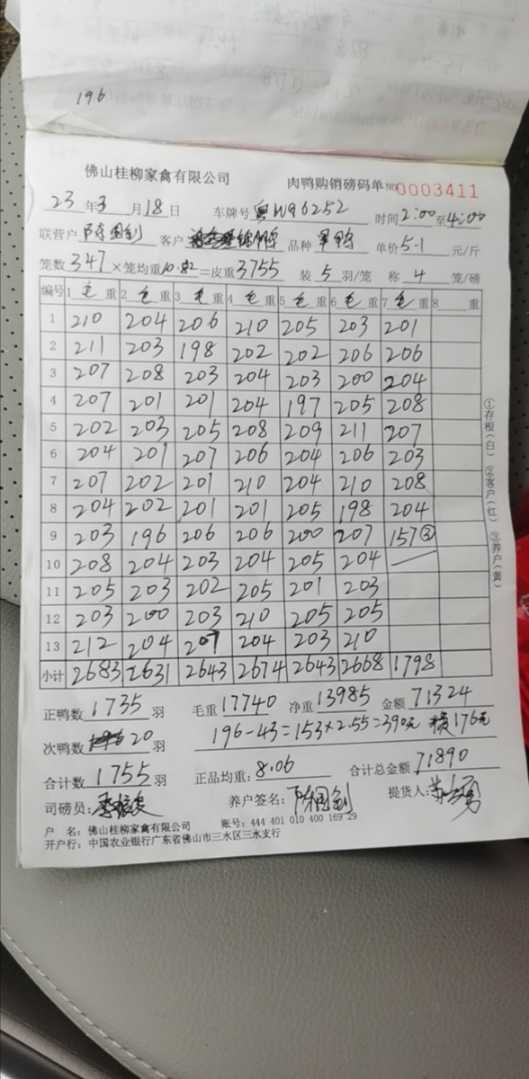 196
佛山桂柳家禽有限公司 肉鸭购销磅码单 NO 0003411
23 年 3 月 18 日 车牌号 粤W96252 时间 2:00 至 4:00
联营户 客户 品种 单价 5.1 元/斤
笼数 347 ×笼均重 10.82 =皮重 3755 装 5 羽/笼 称 4 笼/磅
编号 1 毛 重 2 毛 重 3 毛 重 4 毛 重 5 毛 重 6 毛 重 7 毛 重 8 重
1 210 204 206 210 205 203 201
2 211 203 198 202 202 206 206
3 207 208 203 204 203 200 204
4 207 201 201 204 197 205 208
5 202 203 205 208 209 211 207
6 204 201 207 206 204 206 203
7 207 202 201 210 204 210 208
8 204 202 201 201 205 198 204
9 203 196 206 206 200 207 157③
10 208 204 203 204 205 204
11 205 203 202 205 201 203
12 203 200 203 210 205 205
13 212 204 207 204 203 210
小计 2683 2631 2643 2674 2643 2668 1798
①存根(白) ②客户(红) ③养户(黄)
正鸭数 1735 羽 毛重 17740 净重 13985 金额 71324
次鸭数 20 羽 196-43=153×2.55=390元 176元
合计数 1755 羽 正品均重: 8.06 合计总金额 71890
司磅员: 养户签名: 提货人:
户 名: 佛山桂柳家禽有限公司 账号: 444 401 010 400 169 29
开户行: 中国农业银行广东省佛山市三水区三水支行